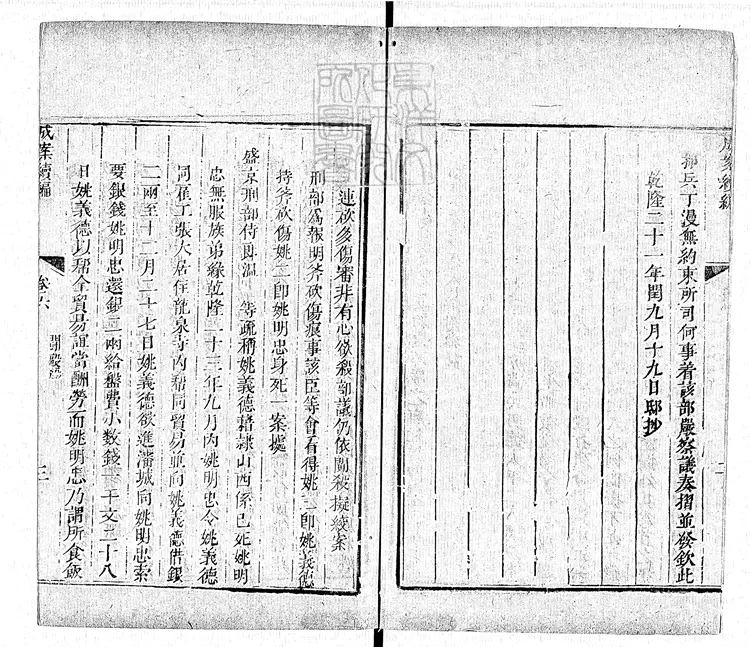 都兵丁漫無約束所司何事着該部嚴察議奏摺並發欽此
乾隆二十一年閏九月十九日邸抄
二
連砍多傷審非有心欲殺部議仍依鬬殺擬絞案
刑部為報明斧砍傷痕事該臣等會看得姚二即姚義德
持斧砍傷姚二即姚明忠身死一案據
盛京刑部侍郎温 等疏稱姚義德籍隸山西係已死姚明
忠無服族弟緣乾隆二十三年九月內姚明忠令姚義德
同雇工張大居住龍泉寺內幫同貿易並向姚義德借銀
二兩至十二月二十七日姚義德欲進瀋城同姚明忠索
要銀錢姚明忠還銀二兩給盤費小數錢一千文二十八
日姚義德以幫伊貿易誼當酬勞而姚明忠乃謂所食飲
成案續編
卷六
鬬毆
三